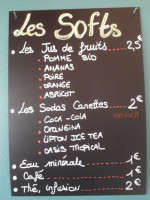 Les Softs
• Les Jus de fruits ..... 2,5€
• POMME BIO
• ANANAS
• POIRE
• ORANGE
• ABRICOT
• Les Sodas Canettes ... 2€
• COCA-COLA
• ORANGINA
• LIPTON ICE TEA
• OASIS TROPICAL
• Eau minérale ...... 1€
• Café ............ 1€
• Thé, infusion ..... 2€